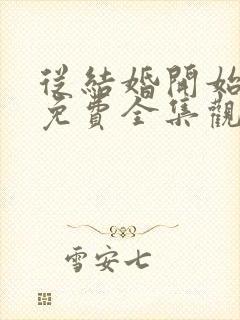 從結婚開始
免費全集觀
雪安七